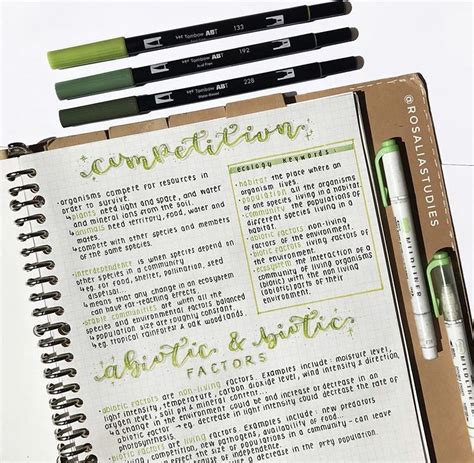 Tombow ABT 133
Tombow ABT 192
Tombow ABT 228
@ROSALIASTUDIES
competition
·organisms compete for resources in
order to survive.
plants need light and space, and water
and mineral ions from the soil.
animals need territory, food, water and
mates.
compete with other species and members
of the same species.
·interdependence is when species depend on
other species in a community
e.g. for food, shelter, pollination, seed
dispersal...
means that any change in an ecosystem
can have far-reaching effects.
·stable communities are when all the
species and environmental factors balanced
population size are roughly constant.
e.g. tropical rainforest & oak woodlands.
ecology keywords..
·habitat the place where an
organism lives.
·population all the organisms
of a species living in a habitat.
·community the populations of
different species living in a
habitat.
·abiotic factors non-living
factors of the environment.
·biotic factors living factors of
the environment.
·ecosystem the interaction of a
community of living organisms
(biotic) with the non living
(abiotic) parts of their
environment.
abiotic & biotic
FACTORS
·abiotic factors are non-living factors. Examples include: moisture level,
light intensity, temperature, carbon dioxide level, wind intensity & direction,
oxygen level, soil pH & mineral content...
a change in the environment could be and increase or decrease in an
abiotic factor → e.g. decrease in light intensity could decrease the rate of
photosynthesis.
·biotic factors are living factors. Examples include: new predators
competition, new pathogens, availability of food...
effect the size of populations in a community - can leave
decrease in the prey population.